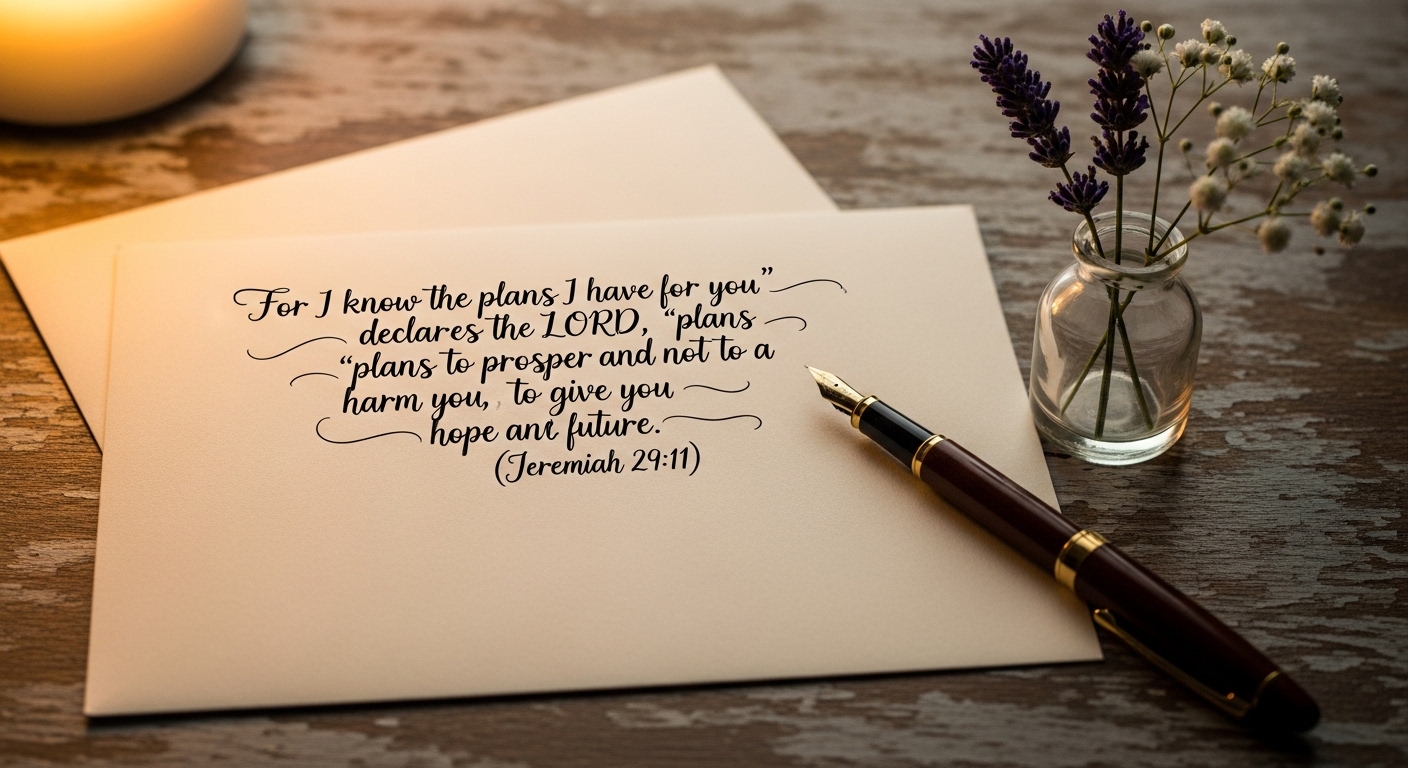 For I know the plans I have for you”
declares the LORD, “plans
“plans to prosper and not to a
harm you, to give you
hope and future.
(Jeremiah 29:11)